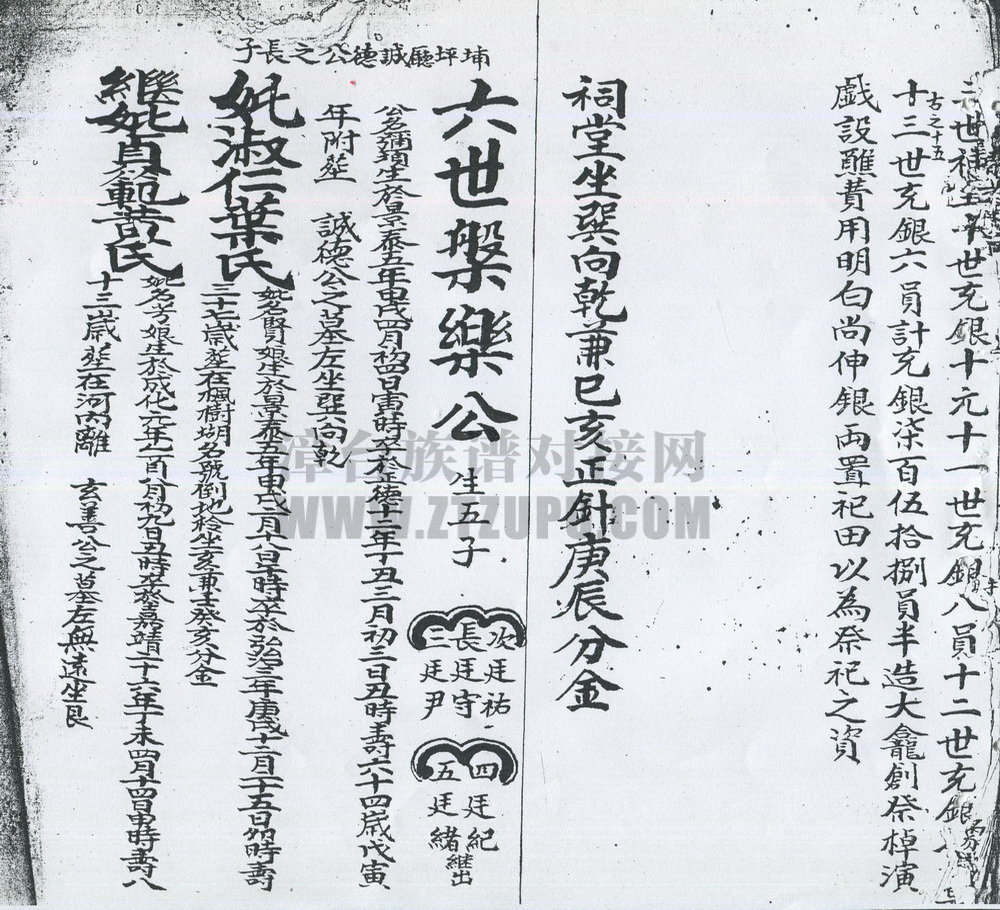 世充銀十元十一世充銀八員十二世充銀
古之十五
十三世充銀六員計充銀柒百伍拾捌員半造大龕創祭棹演
戲設醮費用明白尚伸銀両置祀田以為祭祀之資
祠堂坐巽向乾兼巳亥正針庚辰分金
埔坪廳誠德公之長子
六世槃樂公 生五子
次廷祐
長廷守
三廷尹
四廷紀
五廷緒 継出
公名彌項生於景泰五年甲戌四月初四日寅時卒於正德十二年丁丑三月初二日丑時壽六十四歲戊寅
年附塟 誠德公之墓左坐巽向乾
妣淑仁葉氏
妣名賢娘生於景泰五年甲戌八月十八日時卒於弘治三年庚戌十二月二十五日卯時壽
三十七歲塟在楓樹湖名號倒地坐亥兼壬癸亥分金
継妣貞範黃氏
妣名芳娘生於成化元年八月初九日丑時卒於嘉靖二十六年丁未四月十四日申時壽八
十三歲塟在河內離 玄善公之墓左無遠坐艮
漳台族谱对接网
WWW.ZTZUPU.COM